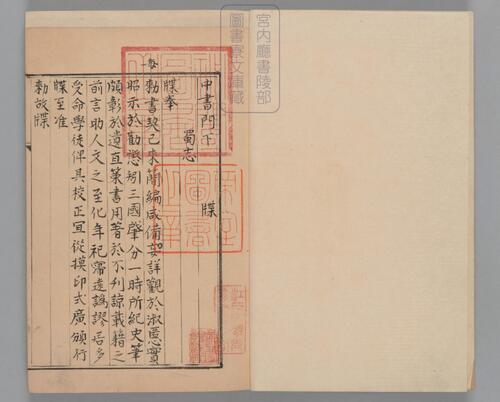 中書門下 牒
蜀志
牒奉
勑書契已來簡編咸備每詳觀於淑慝實
昭示於勸懲矧三國肇分一時所紀史筆
頗彰於遺直策書用著於不刋諒載籍之
前言助人文之至化年祀寖遠譌謬居多
受命學徒俾其校正宜從摸印式廣頒行
牒至准
勑故牒
宮內廳書陵部
圖書寮文庫藏
帝室圖書之章